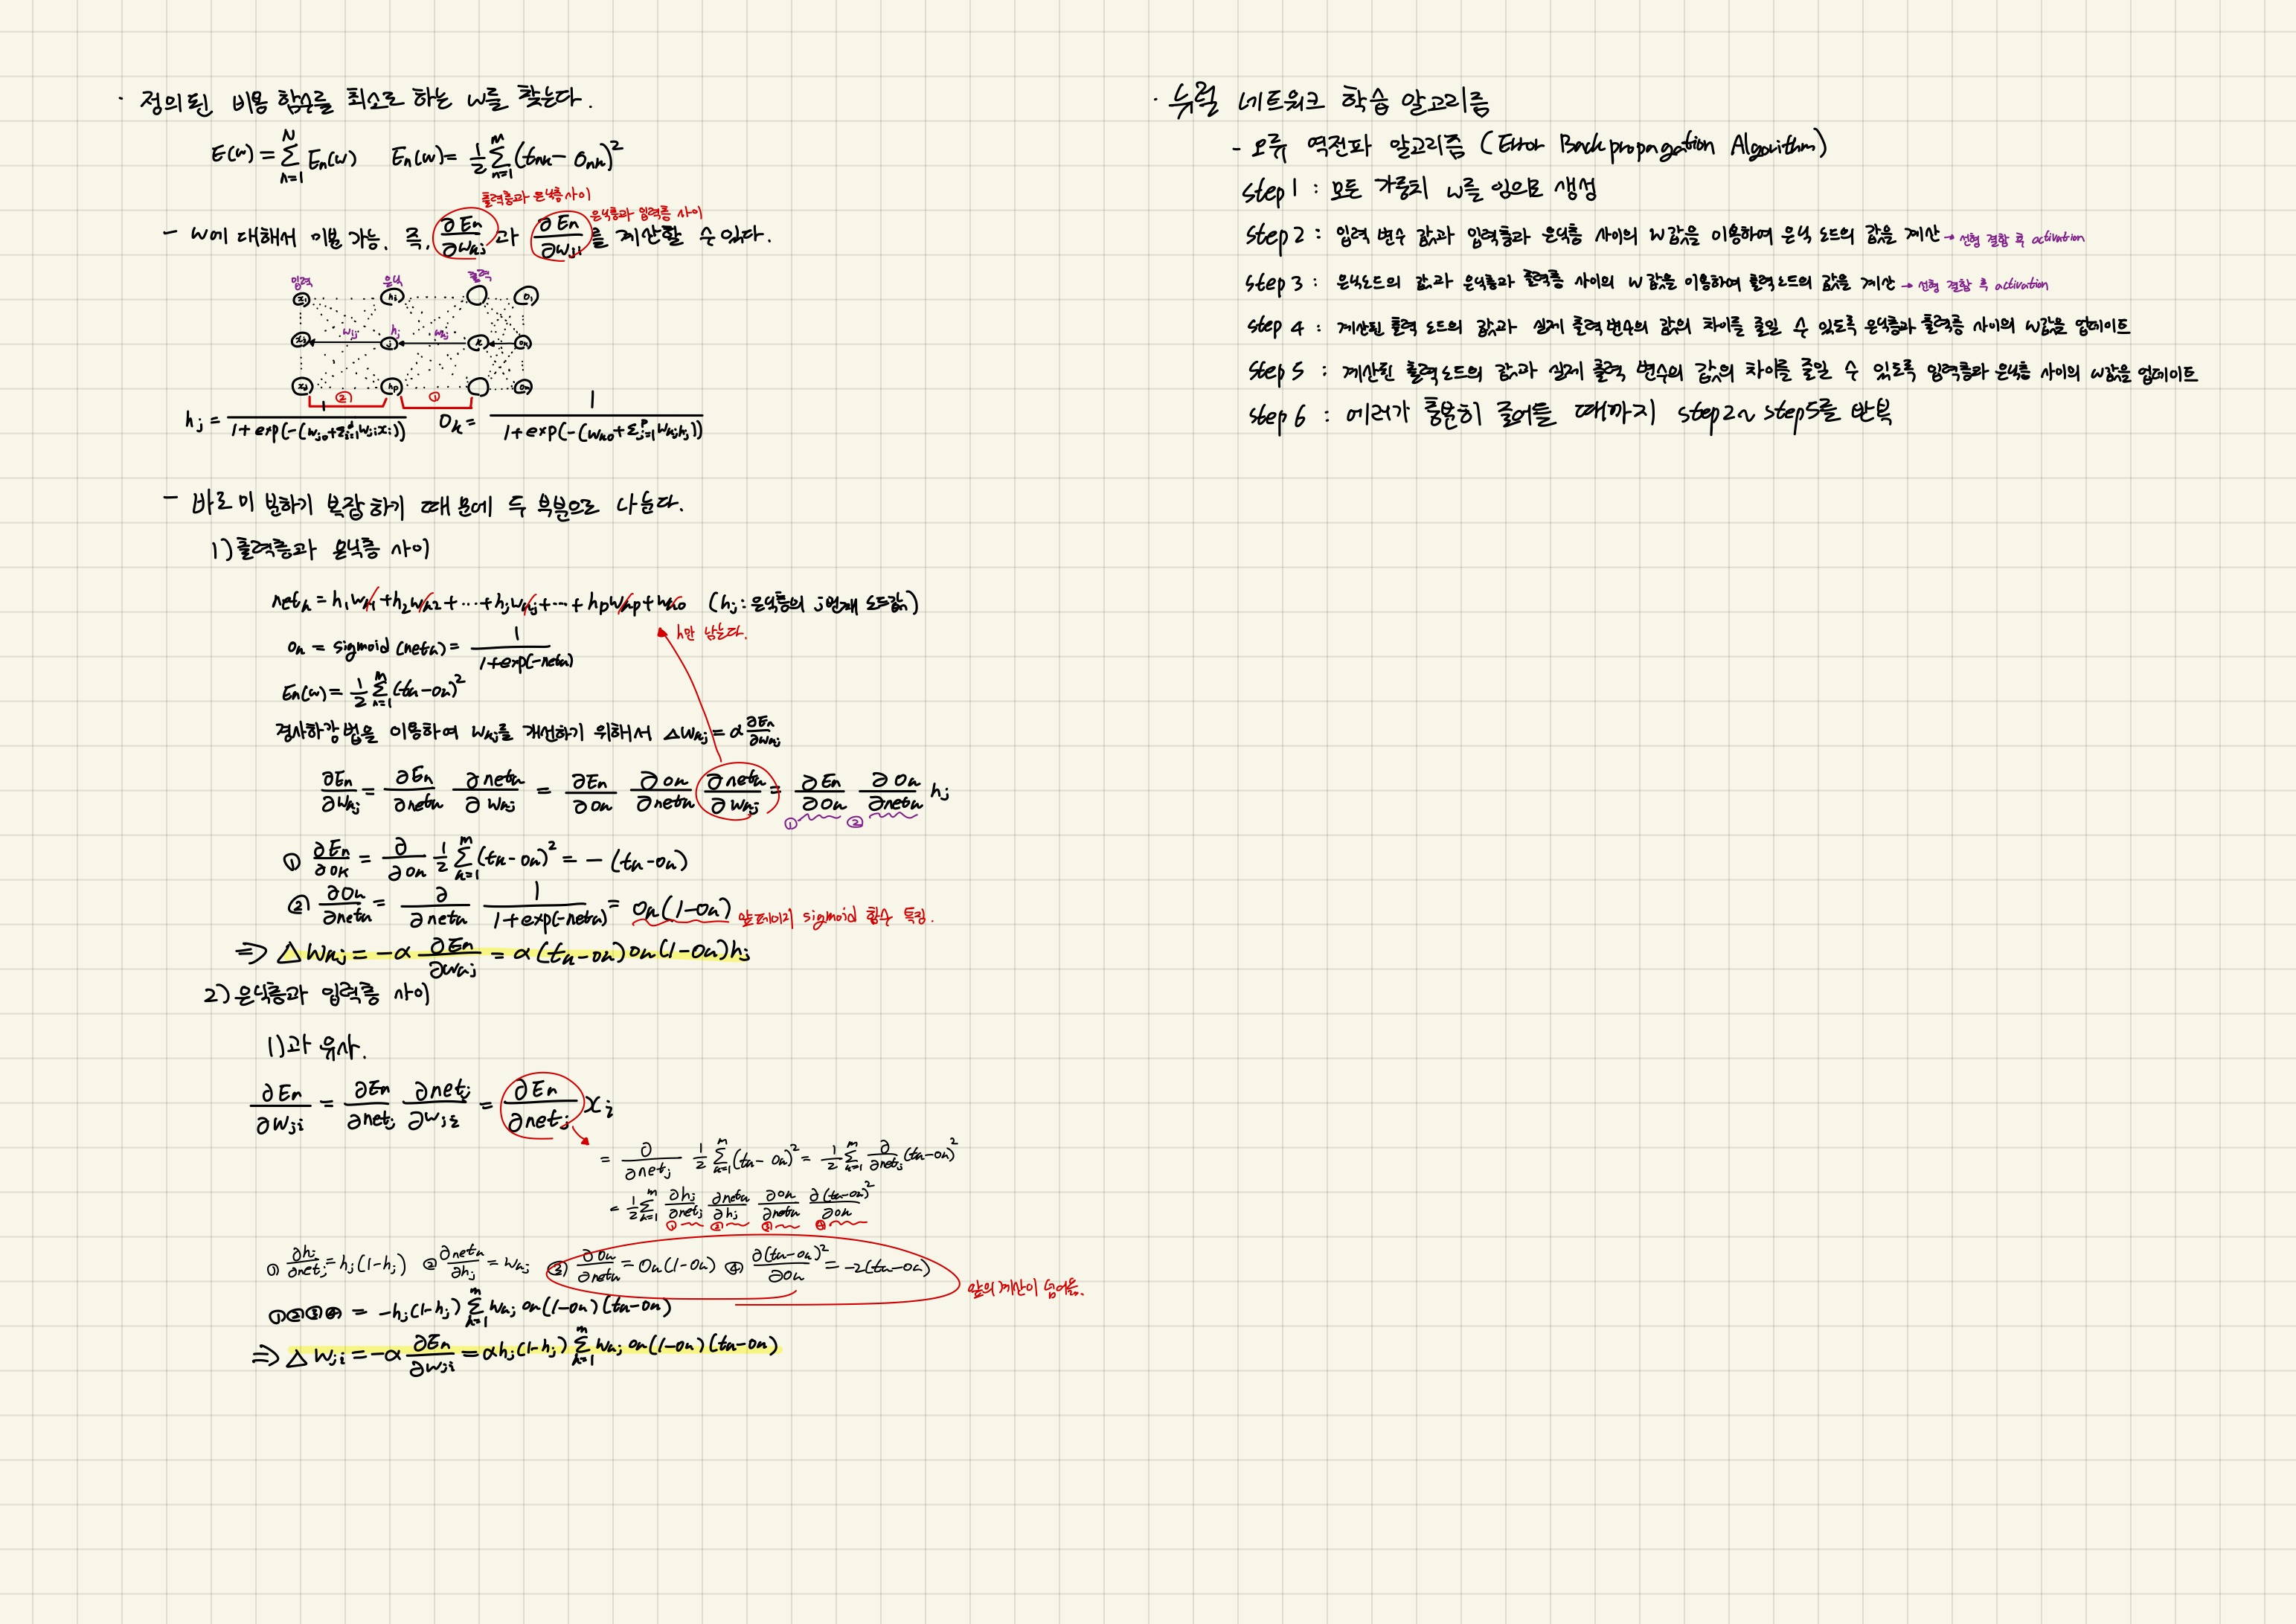 · 정의된 비용 함수를 최소로 하는 w를 찾는다.
E(w) = Σ_{n=1}^{N} En(w)   En(w) = 1/2 Σ_{k=1}^{m} (tnk - Onk)²
출력층과 은닉층 사이
은닉층과 입력층 사이
- w에 대해서 미분 가능. 즉, ∂En/∂wkj 과 ∂En/∂wji 를 계산할 수 있다.
입력 은닉 출력
x1 h1 o1
xi wij hj j wkj k ok
xd hp om
② ①
hj = 1/(1+exp(-(wj0+Σ_{i=1}^{d}wjixi)))   Ok = 1/(1+exp(-(wk0+Σ_{j=1}^{p}wkjhj)))
- 바로 미분하기 복잡하기 때문에 두 부분으로 나눈다.
1) 출력층과 은닉층 사이
netk = h1wk1+h2wk2+···+hjwkj+···+hpwkp+wk0 (hj: 은닉층의 j번째 노드값)
h만 남는다.
ok = sigmoid(netk) = 1/(1+exp(-netk))
En(w) = 1/2 Σ_{k=1}^{m} (tk-ok)²
경사하강법을 이용하여 wkj를 개선하기 위해서 △wkj = α ∂En/∂wkj
∂En/∂wkj = ∂En/∂netk ∂netk/∂wkj = ∂En/∂ok ∂ok/∂netk ∂netk/∂wkj = ∂En/∂ok ∂ok/∂netk hj
① ②
① ∂En/∂ok = ∂/∂ok 1/2 Σ_{k=1}^{m} (tk-ok)² = -(tk-ok)
② ∂ok/∂netk = ∂/∂netk 1/(1+exp(-netk)) = ok(1-ok) 앞 페이지 sigmoid 함수 특징.
⇒ △wkj = -α ∂En/∂wkj = α(tk-ok)ok(1-ok)hj
2) 은닉층과 입력층 사이
1)과 유사.
∂En/∂wji = ∂En/∂netj ∂netj/∂wji = ∂En/∂netj xi
= ∂/∂netj 1/2 Σ_{k=1}^{m} (tk-ok)² = 1/2 Σ_{k=1}^{m} ∂/∂netj (tk-ok)²
= 1/2 Σ_{k=1}^{m} ∂hj/∂netj ∂netk/∂hj ∂ok/∂netk ∂(tk-ok)²/∂ok
① ② ③ ④
① ∂hj/∂netj = hj(1-hj) ② ∂netk/∂hj = wkj ③ ∂ok/∂netk = ok(1-ok) ④ ∂(tk-ok)²/∂ok = -2(tk-ok)
앞의 계산이 넘어옴.
①②③④ = -hj(1-hj) Σ_{k=1}^{m} wkj ok(1-ok)(tk-ok)
⇒ △wji = -α ∂En/∂wji = αhj(1-hj) Σ_{k=1}^{m} wkj ok(1-ok)(tk-ok)
· 뉴럴 네트워크 학습 알고리즘
- 오류 역전파 알고리즘 (Error Backpropagation Algorithm)
step 1 : 모든 가중치 w를 임의로 생성
step 2 : 입력 변수 값과 입력층과 은닉층 사이의 w값을 이용하여 은닉 노드의 값을 계산 → 선형 결합 후 activation
step 3 : 은닉노드의 값과 은닉층과 출력층 사이의 w값을 이용하여 출력노드의 값을 계산 → 선형 결합 후 activation
step 4 : 계산된 출력 노드의 값과 실제 출력 변수의 값의 차이를 줄일 수 있도록 은닉층과 출력층 사이의 w값을 업데이트
step 5 : 계산된 출력 노드의 값과 실제 출력 변수의 값의 차이를 줄일 수 있도록 입력층과 은닉층 사이의 w값을 업데이트
step 6 : 에러가 충분히 줄어들 때까지 step2~step5를 반복